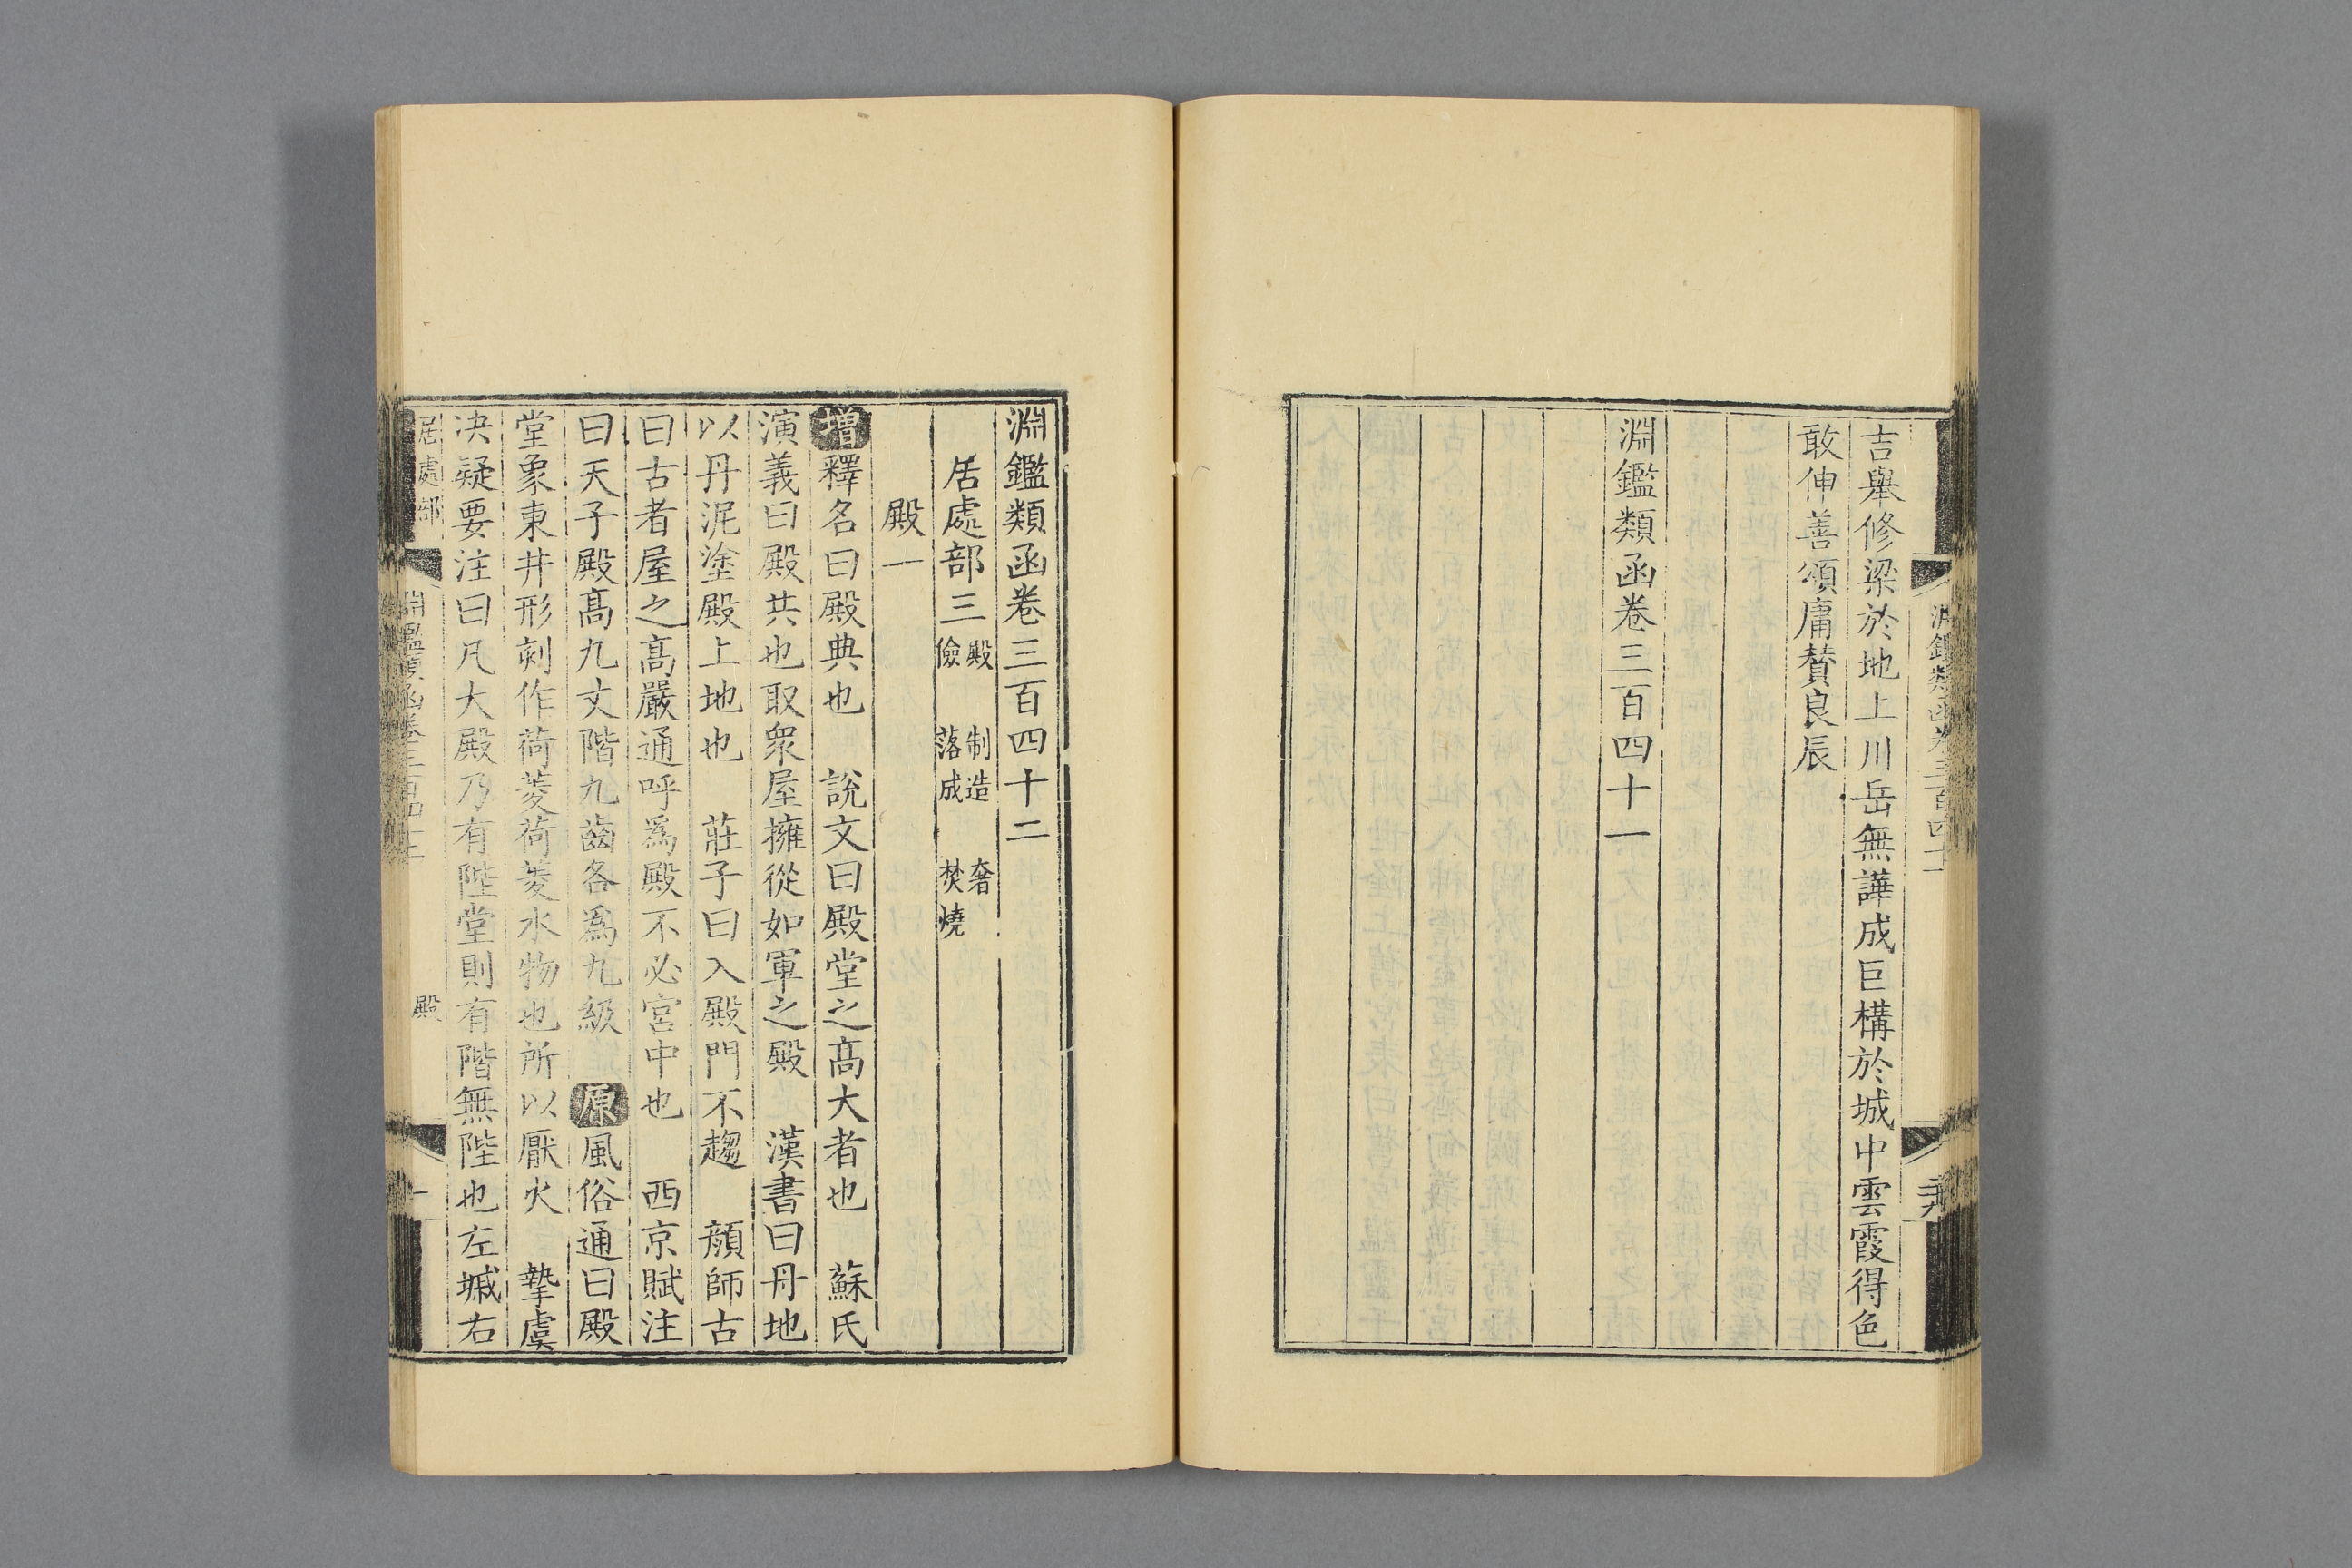 吉舉修梁於地上川岳無譁成巨構於城中雲霞得色
敢伸善頌庸贊良辰
淵鑑類函卷三百四十一
淵鑑類函卷三百四十二
居處部三 殿 制造 奢
儉 落成 焚燒
殿一
增釋名曰殿典也 說文曰殿堂之高大者也 蘇氏
演義曰殿共也取衆屋擁從如軍之殿 漢書曰丹地
以丹泥塗殿上地也 莊子曰入殿門不趨 顏師古
曰古者屋之高嚴通呼爲殿不必宮中也 西京賦注
曰天子殿高九丈階九齒各爲九級 原風俗通曰殿
堂象東井形刻作荷菱荷菱水物也所以厭火 摯虞
決疑要注曰凡大殿乃有陛堂則有階無陛也左墄右
居處部 淵鑑類函卷三百四十二 殿 一